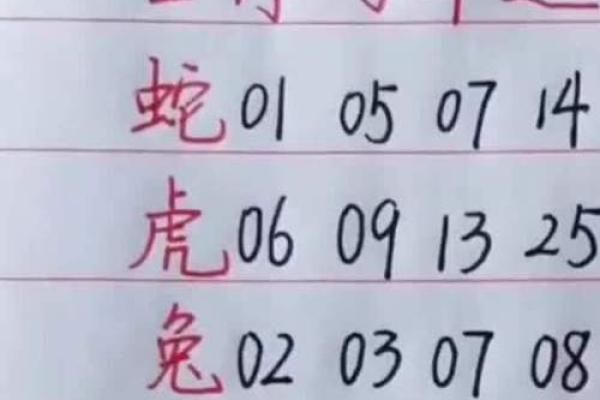 蛇 01 05 07 14
虎 06 09 13 25
兔 02 03 07 08